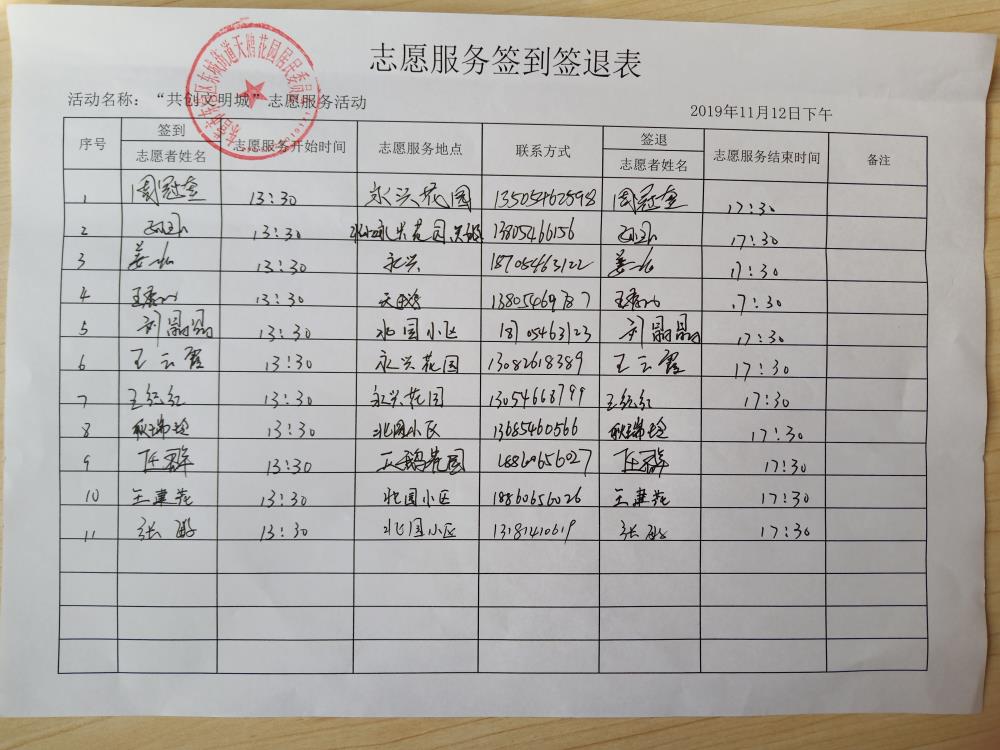 志愿服务签到签退表
活动名称：“共创文明城”志愿服务活动
2019年11月12日下午
序号 签到 志愿服务开始时间 志愿服务地点 联系方式 签退 志愿服务结束时间 备注
志愿者姓名 志愿者姓名
1 周冠奎 13:30 永兴花园 13505462598 周冠奎 17:30
2 13:30 永兴花园 13805466156 17:30
3 姜 13:30 永兴 18705463122 姜 17:30
4 王 13:30 天鹅 13805469787 王 17:30
5 刘晶晶 13:30 北园小区 18705463123 刘晶晶 17:30
6 王云霞 13:30 永兴花园 13082618389 王云霞 17:30
7 王红 13:30 永兴花园 13054668799 王红 17:30
8 耿瑞 13:30 北园小区 13685460566 耿瑞 17:30
9 任群 13:30 天鹅花园 18860656027 任群 17:30
10 王建花 13:30 北园小区 18860656026 王建花 17:30
11 张 13:30 北园小区 13181410619 张 17:30